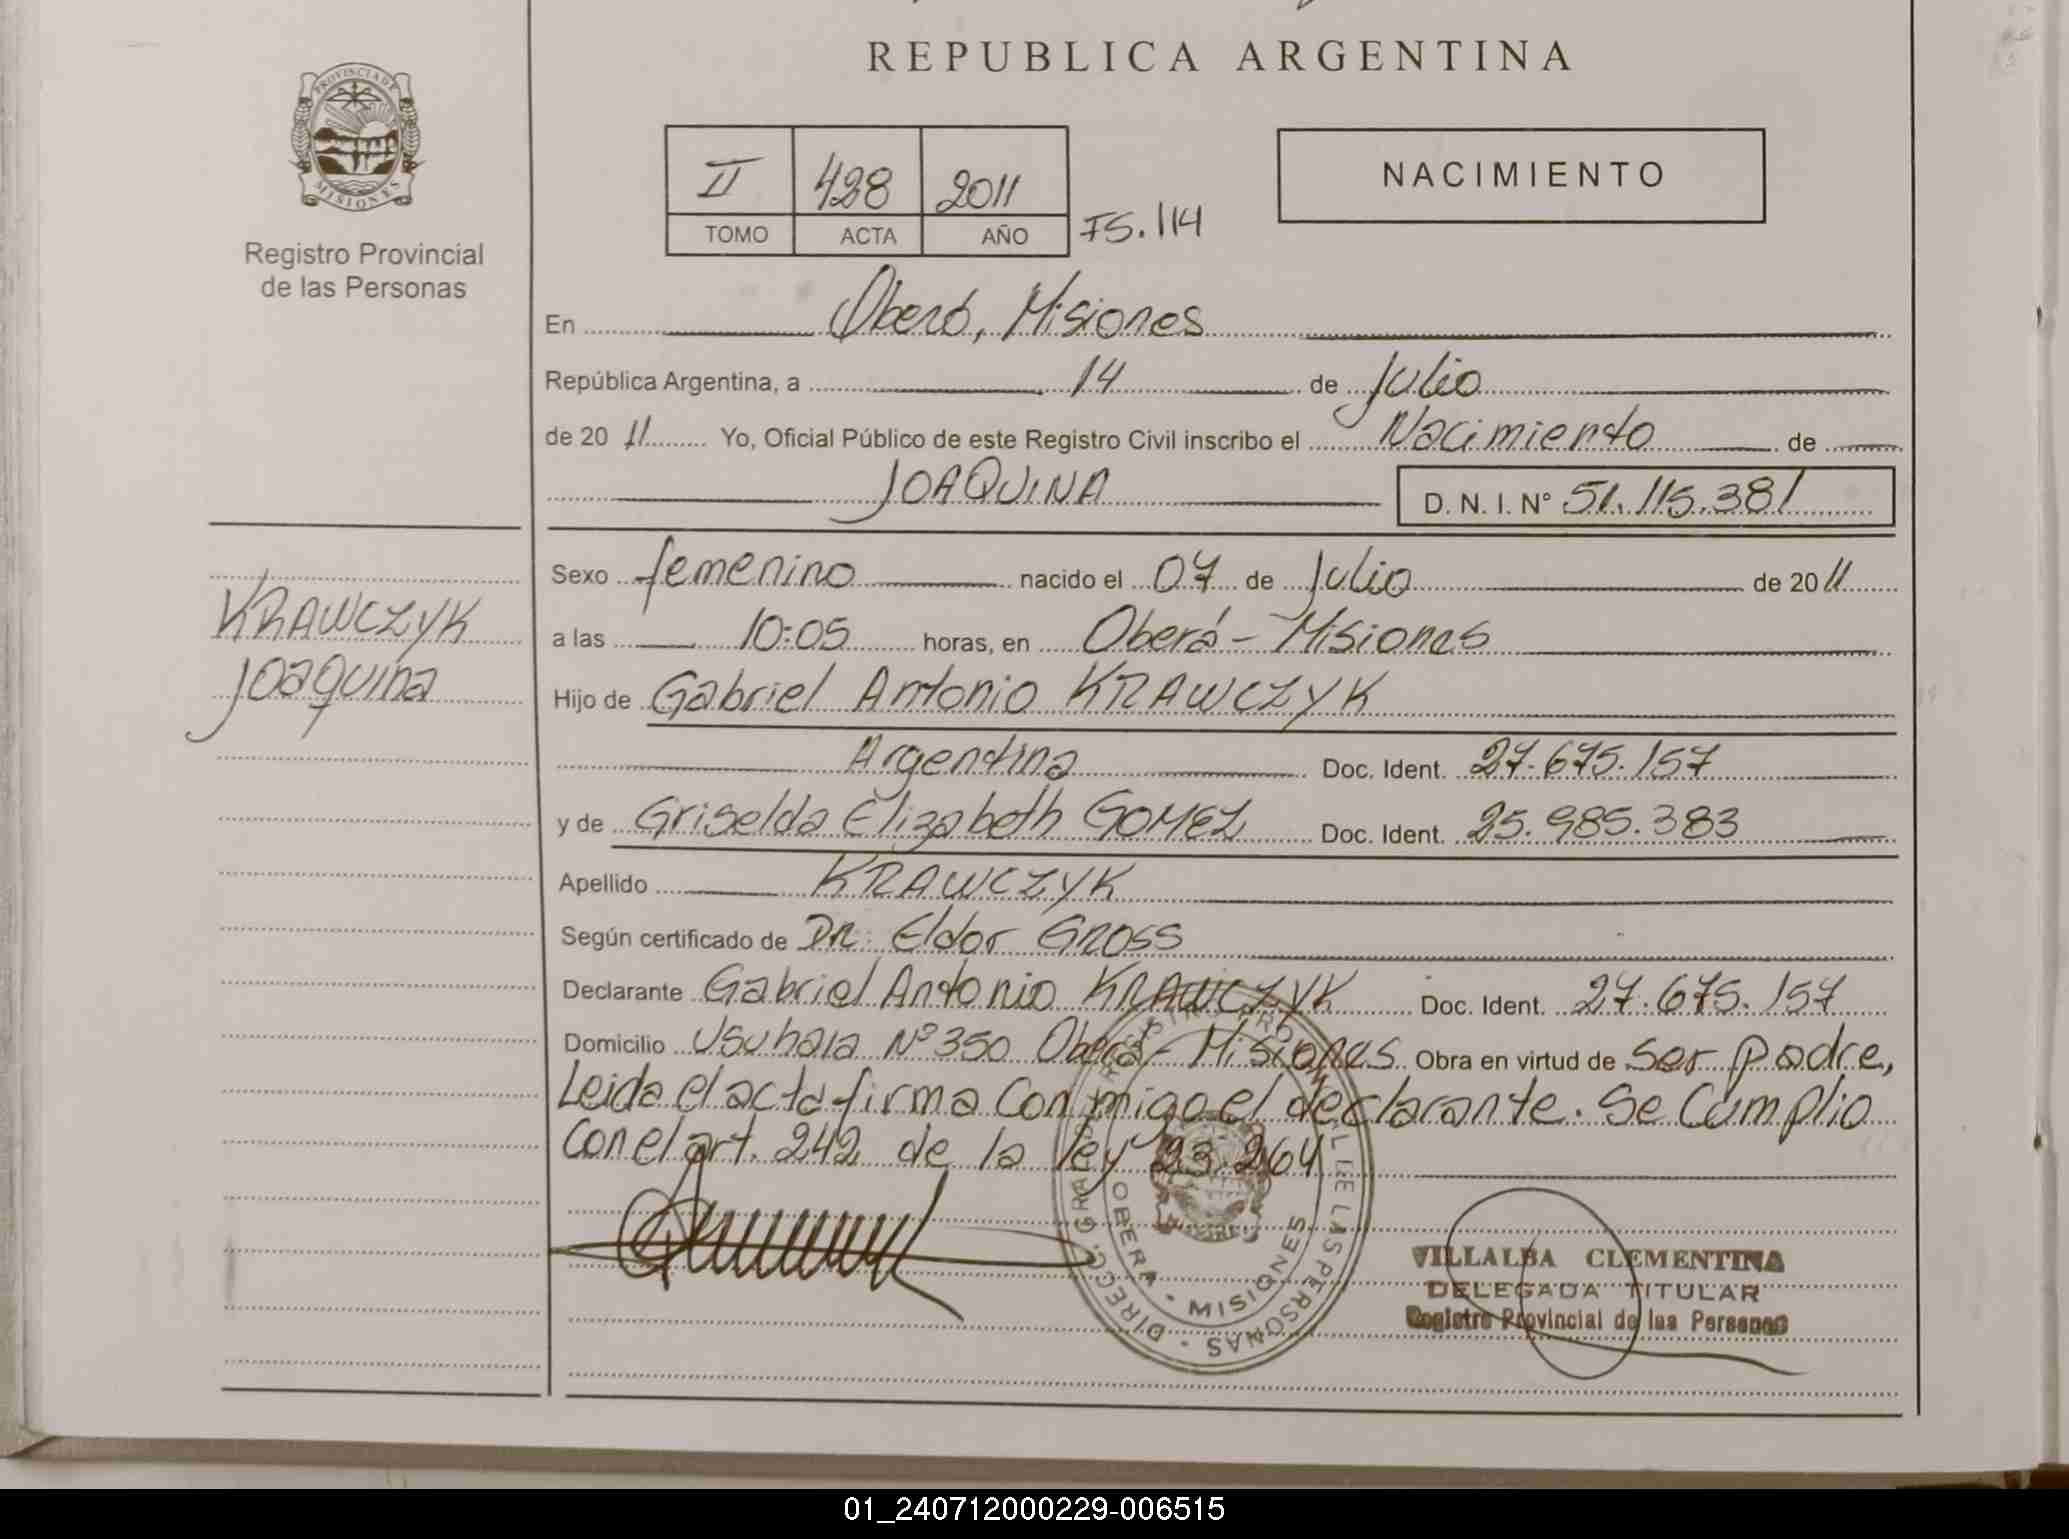 REPUBLICA ARGENTINA
PROVINCIA DE
MISIONES
Registro Provincial
de las Personas
II 428 2011
TOMO ACTA AÑO
FS. 114
NACIMIENTO
En Oberá, Misiones
República Argentina, a 14 de Julio
de 20 11 Yo, Oficial Público de este Registro Civil inscribo el Nacimiento de
JOAQUINA D. N. I. N° 51.115.381
KRAWCZYK
Joaquina
Sexo femenino nacido el 07 de Julio de 20 11
a las 10:05 horas, en Oberá - Misiones
Hijo de Gabriel Antonio KRAWCZYK
Argentina Doc. Ident. 27.675.157
y de Griselda Elizabeth GOMEZ Doc. Ident. 25.985.383
Apellido KRAWCZYK
Según certificado de DR. Eldor GROSS
Declarante Gabriel Antonio KRAWCZYK Doc. Ident. 27.675.157
Domicilio Usuhaia N° 350 Oberá - Misiones Obra en virtud de Ser padre,
Leida el acta firma conmigo el declarante. Se Cumplio
con el art. 242 de la ley 23.264
OBERA - MISIONES
VILLALBA CLEMENTINA
DELEGADA TITULAR
Registro Provincial de las Personas
01_240712000229-006515